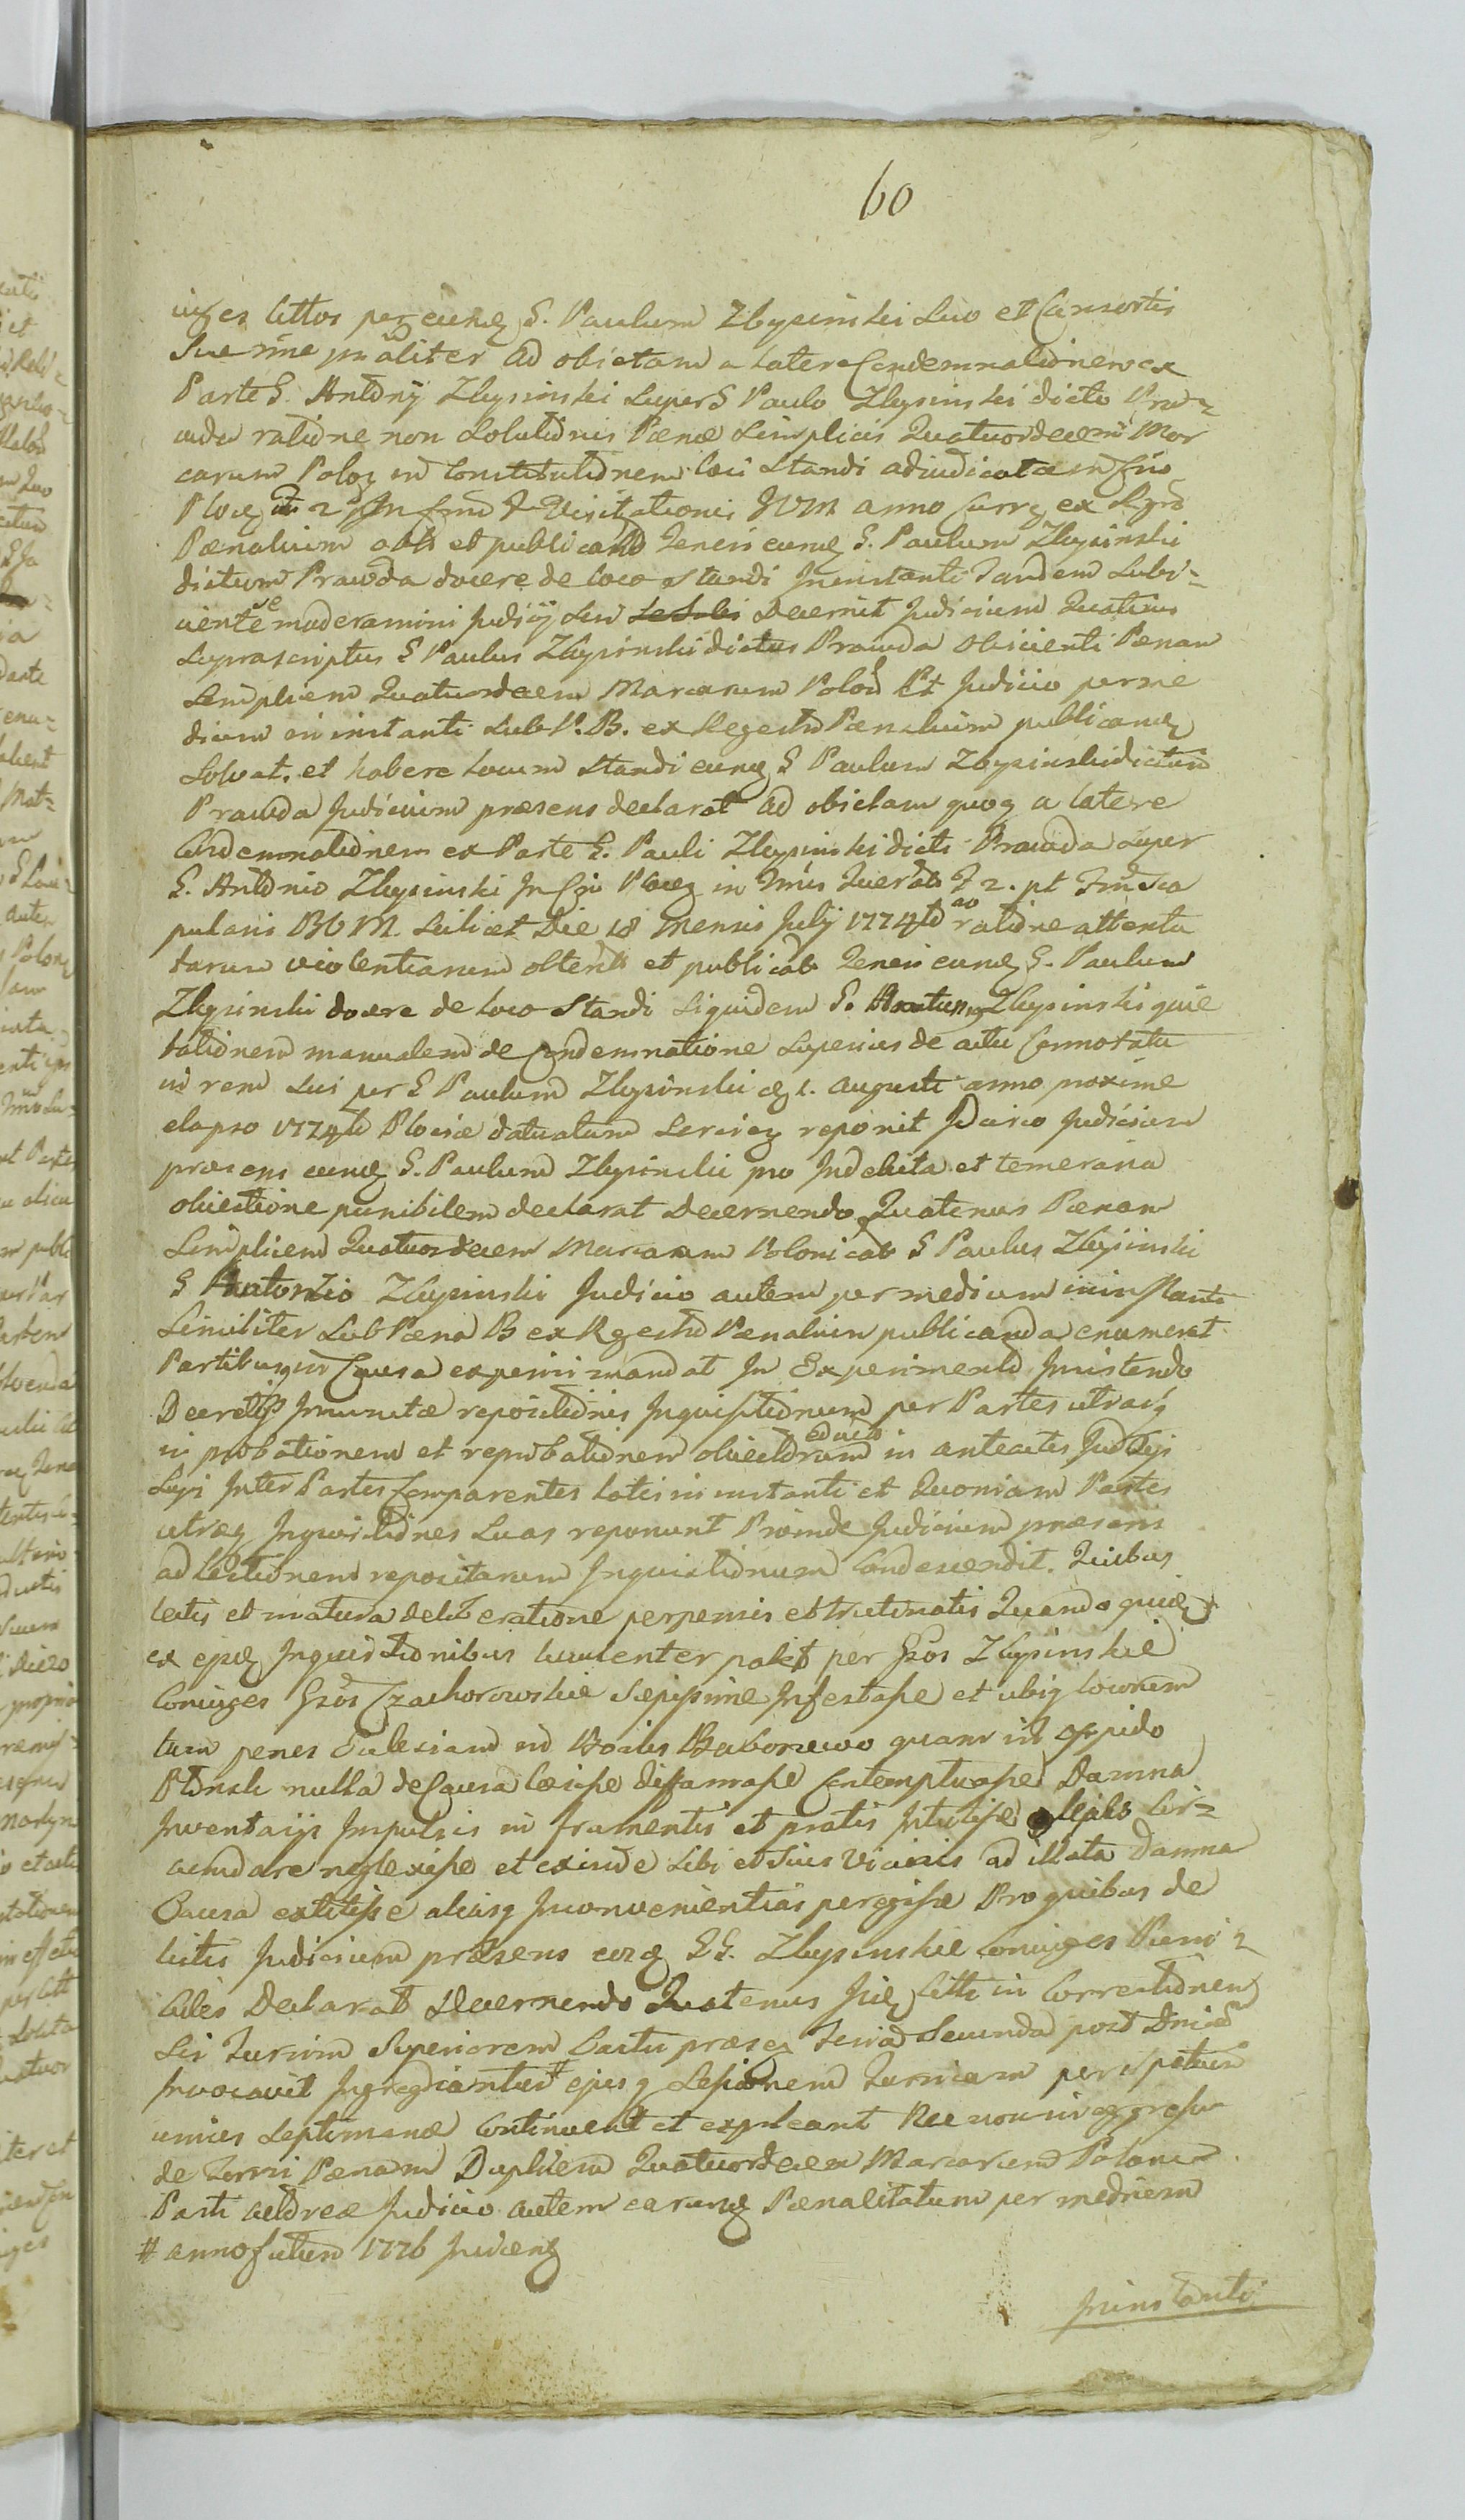 60
iuges cittos per eund S. Paulum Zbysinski suo et Consortis
Suae nne ad obictam a latere Condemnationem ex
Parte S. Antonij Zbysinski super S Paulo Zbysinski dicto Praw=
ratione non Solutionis Paenae Simplicis Quatuordecem Mar
carum Polog in Constitutionem loci Standi adiudicatae in
Ploceg Visitationis BVM anno Curr ex Rgro
Paenalium obto et publicato Teneri eund S. Paulum Zbysinski
dictum Prawda docere de loco Standi Ininstanti Tandem Subi=
iente moderamini Judicij Sui Decernit Judicium Quatinus
Suprascriptus S Paulus Zbysinski dictus Prawda Obicienti Paenam
Simplicem Quatuordecem Marcarum Polon Et Judicio per me
dium in instanti sub P. B. ex Regestro Paenalium publicand
Solvat. et habere locum Standi eund S Paulum Zbysinski dictum
Prawda Judicium praesens declarat Ad obictam quoq a latere
Condemnationem ex Parte S. Pauli Zbysinski dicti Prawda super
S. Antonio Zbysinski In Ploceg in Tmis Querel F 2. pt Sca
pularis BVM Scilicet Die 18 Mensis Julij 1774to ao ratione attenta
tarum violentiarum obtent et publicat Teneri eund S. Paulum
Zbysinski docere de loco Standi Siquidem S. Zbysinski quie
tationem manualem de Condemnatione Superius de actu Connotata
in rem Sui per S Paulum Zbysinski 1. Augusti anno proxime
elapso 1774to Plociae datuatum reponit Ideirco Judicium
praesens eund S. Paulum Zbysinski pro Indebita et temeraria
obiectione punibilem declarat Decernendo Quatenus Paenam
Simplicem Quatuordecem Marcarum Polonical S Paulus Zbysinski
S Antonio Zbysinski Judicio autem per medium ininstanti
Similiter Sub Paena B ex Rgestro Paenalium publicanda enumerat
Partibusq in Causa experiri mandat In Experimento Insistendo
Decretis Iniunctae repositionis Inquisitionum per Partes utrasq
in probationem et reprobationem obiectorum in anteactis
Inter Partes Comparentes latis in instanti et Quoniam Partes
utraeq Inquisitiones Suas reponunt Proinde Judicium praesens
ad lectionem repositarum Inquisitionum Condescendit. Quibus
lectis et matura deliberatione perpensis et trutinatis Quando quid
ex Inquisitionibus luculenter patet per Gsos Zbysinskie
Coniuges Gsos Czachorowskie Saepissime Infestasse et ubiq locorum
tum penes Ecclesiam in Bonis Baboszewo quam in Oppido
Plonsk nulla de Causa laesisse diffamasse Contemptuasse Damna
Inventarijs Impulsis in frumentis et pratis Intulisse
neglexisse et exinde Sibi et Suis Vicinis ad illata Damna
Causa extitisse aliasq Inconvenientias peregisse Pro quibus de
lictis Judicium praesens eosd SS. Zbysinskie Coniuges Puni=
biles Declarat Decernendo Quatenus Citti in Correctionem
Sui Turrim Superiorem Castri Feria Secunda post Dnicam
Invocavit Ingrediantur # ejusq Sessionem Turriam per Spatium
unius Septimanae Continuent et expleant Nec non in egressu
de Turri Paenam Duplicem Quatuordecem Marcarum Polon
Parti actoreae Judicio autem earund Paenalitatum per medium
# anno futuro 1776
Ininstanti